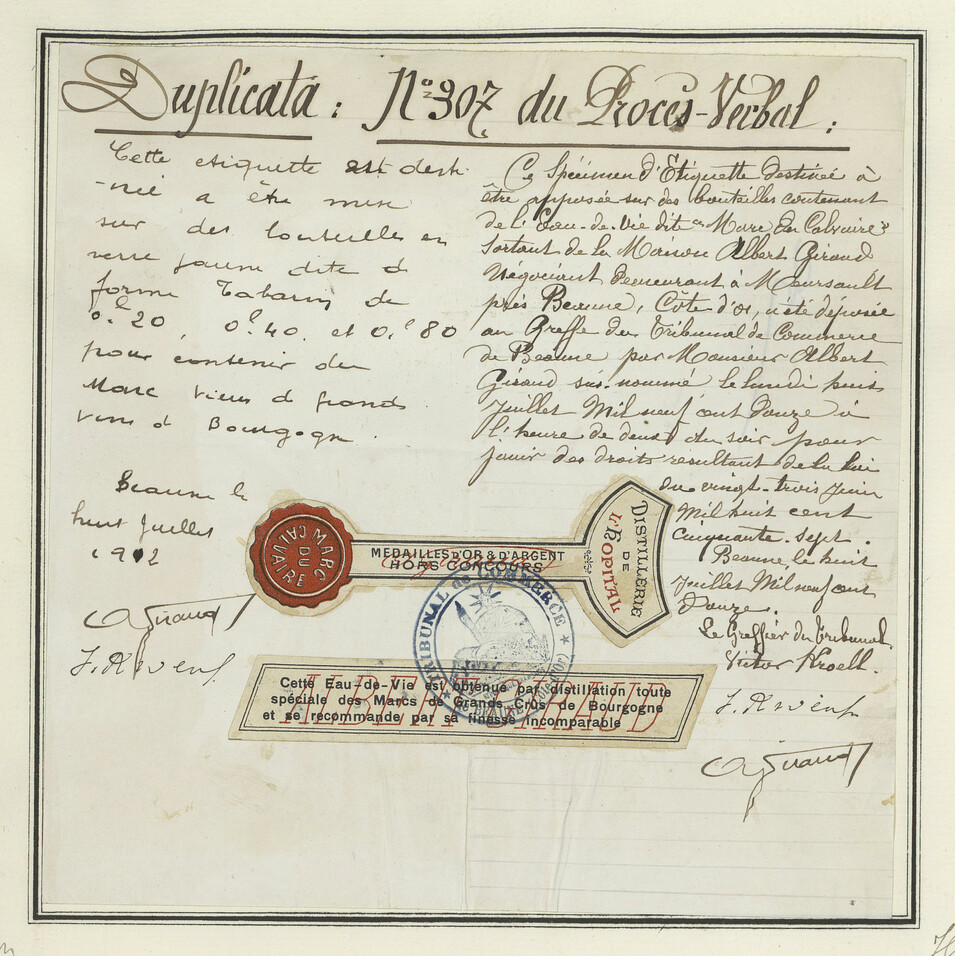 Duplicata : No 307 du Procès-Verbal :
Cette etiquette est desti
-née a être mise
sur des bouteilles en
verre jaune dite d
forme Tabarin de
0.l20, 0.l40 et 0.l80
pour contenir du
Marc vieux d grands
vins d Bourgogne.
Beaune le
huit Juillet
1912
AGiraud
Ce Spécimen d'Etiquette destinée à
être apposée sur des bouteilles contenant
de l'Eau-de-Vie dite "Marc Du Calvaire"
Sortant de la Maison Albert Giraud
Négociant Demeurant à Meursault
près Beaune, Côte d'Or, a été déposée
au Greffe du Tribunal de Commerce
de Beaune par Monsieur Albert
Giraud sus-nommé le lundi huit
Juillet Mil neuf cent Douze à
l'heure de deux du soir pour
jouir des droits résultant de la Loi
du vingt-trois Juin
Mil huit cent
Cinquante-sept.
Beaune, le huit
Juillet Mil neuf cent
Douze.
Le Greffier du Tribunal
Victor Kroell.
AGiraud
MARC
DU
CALVAIRE
MEDAILLES D'OR & D'ARGENT
HORS CONCOURS
DISTILLERIE
DE
L'HOPITAL
TRIBUNAL de COMMERCE
ALBERT GIRAUD
Cette Eau-de-Vie est obtenue par distillation toute
spéciale des Marcs de Grands Crûs de Bourgogne
et se recommande par sa finesse incomparable